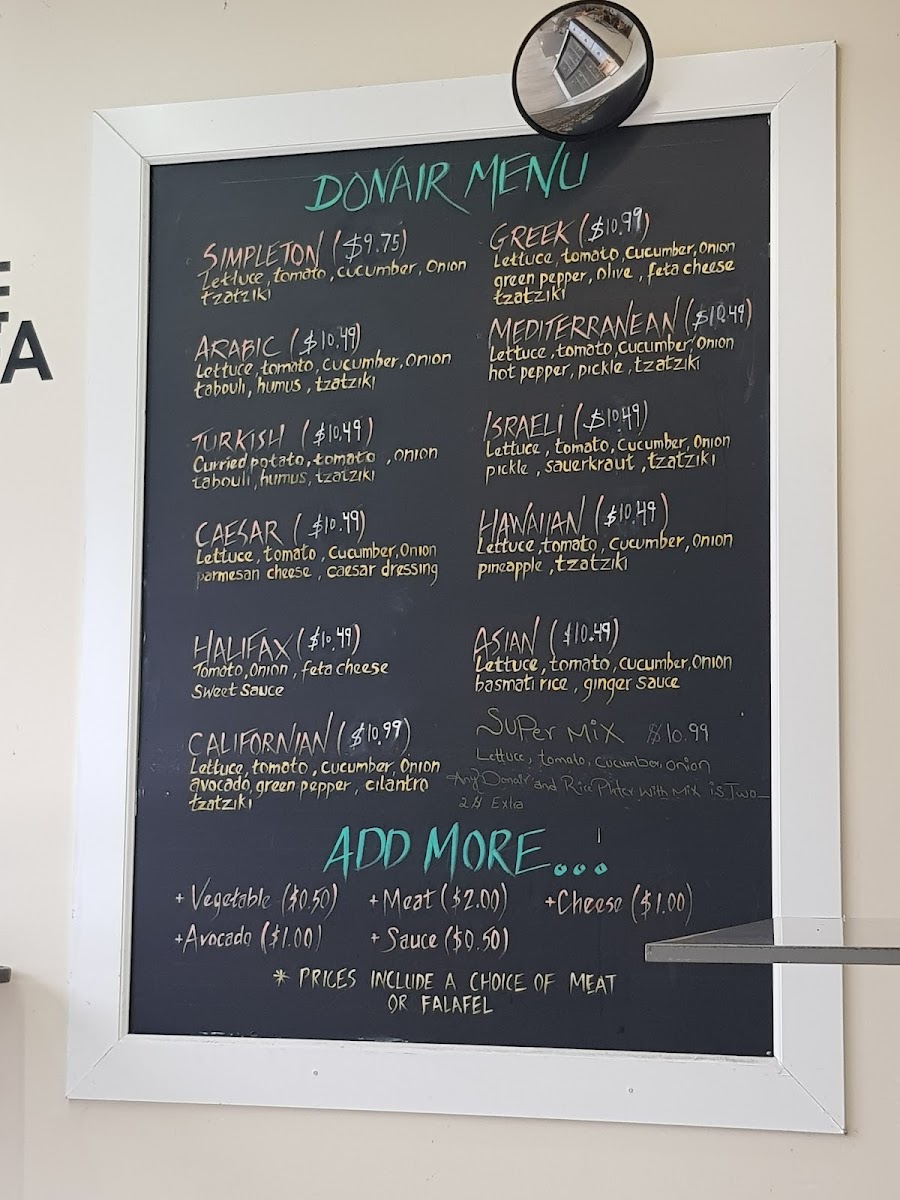 E
TA
DONAIR MENU
SIMPLETON ($9.75)
Lettuce, tomato, cucumber, Onion
tzatziki
ARABIC ($10.49)
Lettuce, tomato, cucumber, Onion
tabouli, humus, tzatziki
TURKISH ($10.49)
Curried potato, tomato , onion
tabouli, humus, tzatziki
CAESAR ($10.49)
Lettuce, tomato, cucumber, Onion
parmesan cheese, caesar dressing
HALIFAX ($10.49)
Tomato, Onion, feta cheese
Sweet Sauce
CALIFORNIAN ($10.99)
Lettuce, tomato, cucumber, Onion
avocado, green pepper, cilantro
tzatziki
GREEK ($10.99)
Lettuce, tomato, cucumber, Onion
green pepper, olive, feta cheese
tzatziki
MEDITERRANEAN ($10.49)
Lettuce, tomato, cucumber, Onion
hot pepper, pickle, tzatziki
ISRAELI ($10.49)
Lettuce, tomato, cucumber, Onion
pickle, sauerkraut, tzatziki
HAWAIIAN ($10.49)
Lettuce, tomato, cucumber, Onion
pineapple, tzatziki
ASIAN ($10.49)
Lettuce, tomato, cucumber, Onion
basmati rice, ginger sauce
SUPer MiX $10.99
Lettuce, tomato, cucumber, onion
Any Donair and Rice with Mix is Two
Extra
ADD MORE...
+ Vegetable ($0.50) + Meat ($2.00) + Cheese ($1.00)
+ Avocado ($1.00) + Sauce ($0.50)
* PRICES INCLUDE A CHOICE OF MEAT
OR FALAFEL